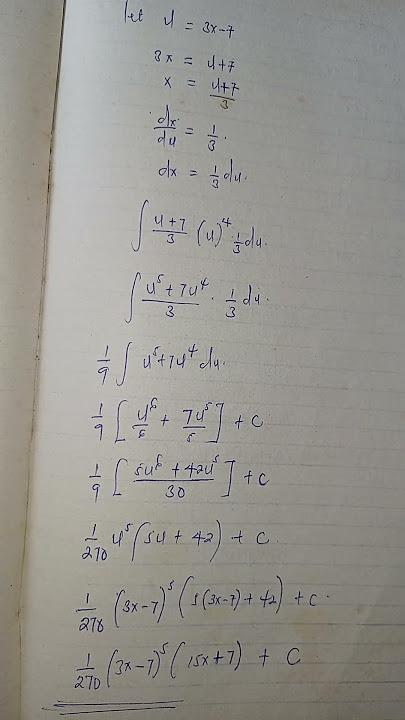 let u = 3x-7
3x = u+7
x = u+7/3
dx/du = 1/3.
dx = 1/3 du.
∫ u+7/3 (u)^4 1/3 du.
∫ u^5+7u^4/3 · 1/3 du.
1/9 ∫ u^5+7u^4 du.
1/9 [u^6/6 + 7u^5/5] + C
1/9 [5u^6 + 42u^5/30] + C
1/270 u^5 (5u + 42) + C.
1/270 (3x-7)^5 (5(3x-7) + 42) + C.
1/270 (3x-7)^5 (15x+7) + C